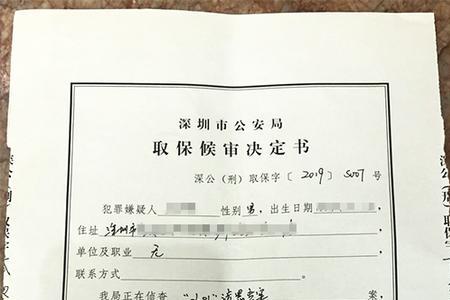 深圳市公安局
取保候审决定书
深公（刑）取保字〔2019〕5007号
犯罪嫌疑人 性别男，出生日期
住址 深圳市
单位及职业 无
联系方式
我局正在侦查 案，
深公（刑）取保字